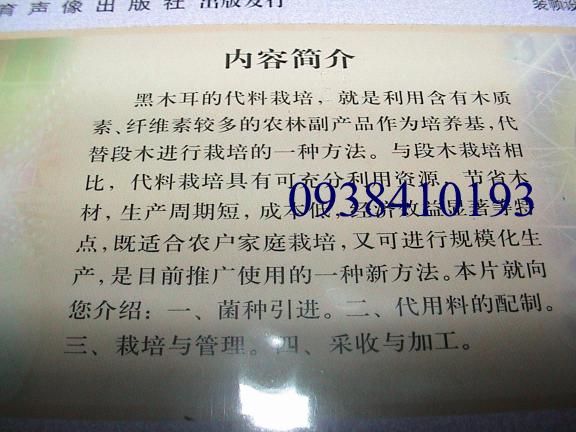 育声像出版社 出版发行
内容简介
黑木耳的代料栽培，就是利用含有木质
素、纤维素较多的农林副产品作为培养基,代
替段木进行栽培的一种方法。与段木栽培相
比，代料栽培具有可充分利用资源、节省木
材，生产周期短，成本低，经济效益显著等特
0938410193
点，既适合农户家庭栽培，又可进行规模化生
产，是目前推广使用的一种新方法。本片就向
您介绍：一、菌种引进。二、代用料的配制。
三、栽培与管理。四、采收与加工。